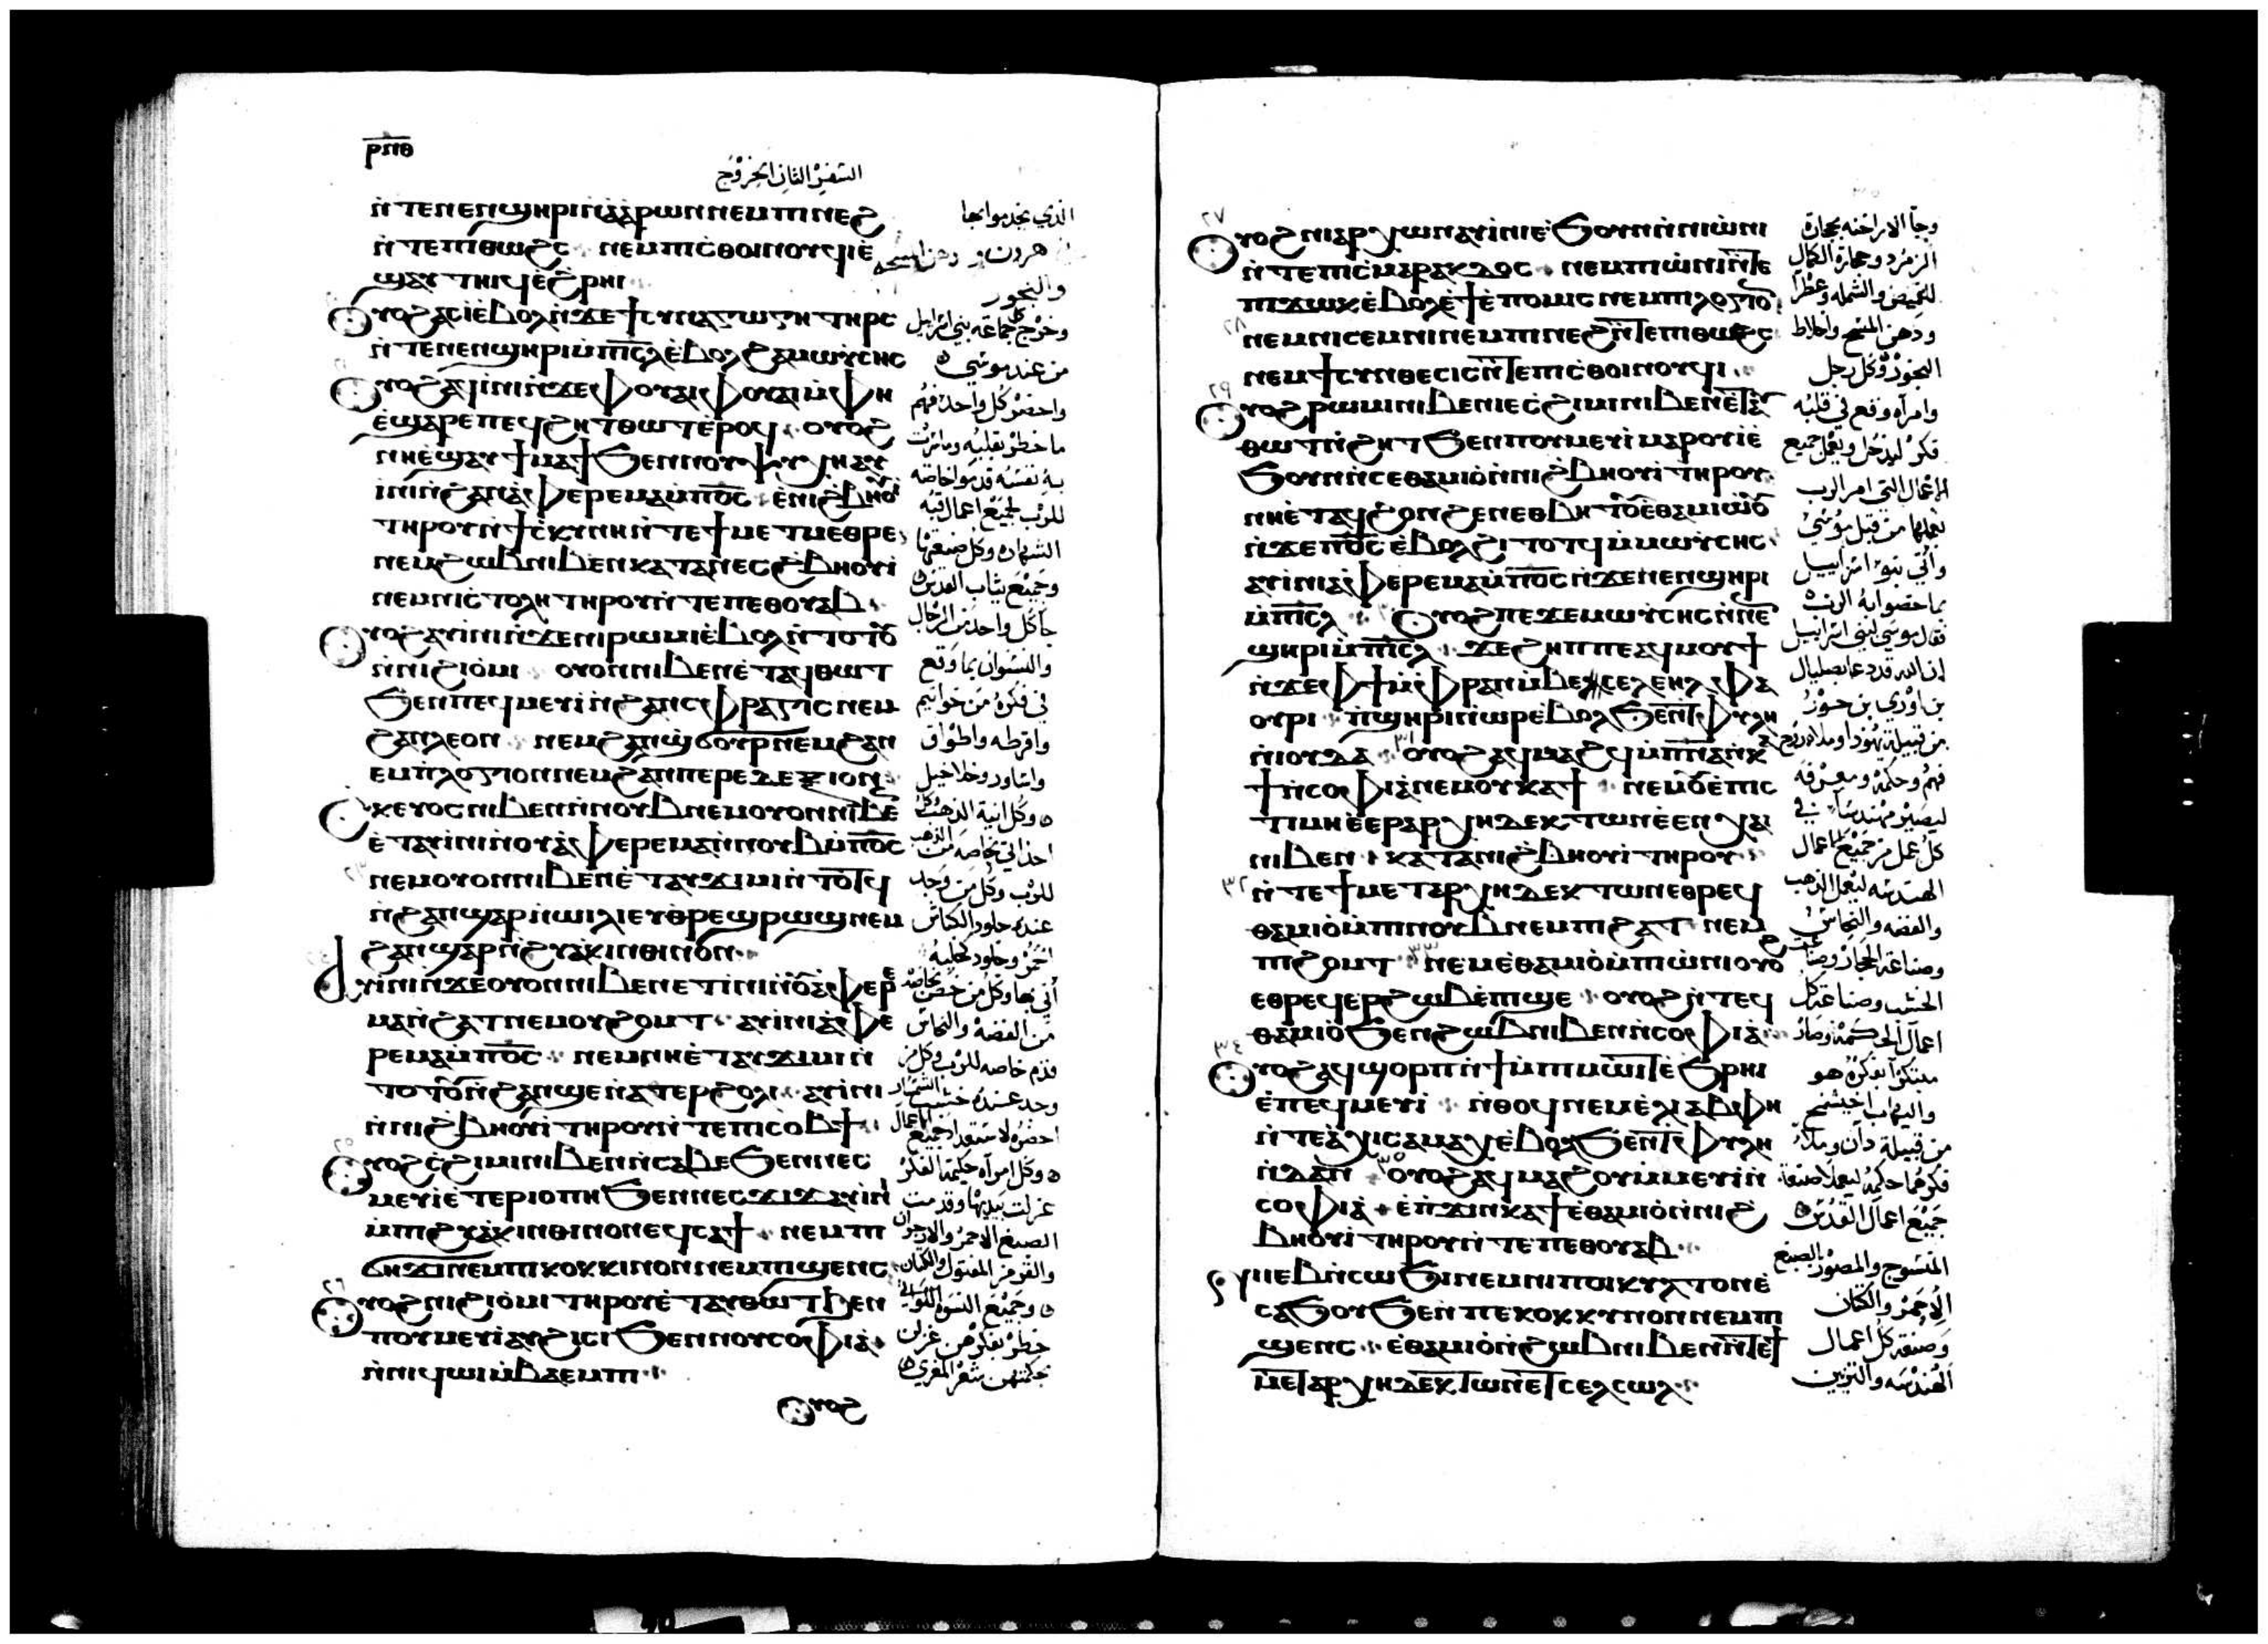 ⲣⲡⲑ
السفر الثاني الخروج
ⲛ̀ⲧⲉⲛⲉⲛϣⲏⲣⲓⲛ̀ⲁ̀ⲁⲣⲱⲛⲛⲉⲙⲡⲓⲛⲉϩ
ⲛ̀ⲧⲉⲡⲓⲑⲱϩⲥ ⲛⲉⲙⲡⲓⲥ̀ⲑⲟⲓⲛⲟⲩϥⲓⲉ̀
ϣⲁⲩⲧⲏⲓϥⲉ̀ϩ̀ⲣⲏⲓ
ⲟⲩⲟϩⲁⲥⲓⲉ̀ⲃⲟⲗⲛ̀ϫⲉϯⲥⲩⲛⲁⲅⲱⲅⲏⲧⲏⲣⲥ
ⲛ̀ⲧⲉⲛⲉⲛϣⲏⲣⲓⲙ̀ⲡⲓⲥⲗⲉ̀ⲃⲟⲗϩⲁⲙⲱⲩⲥⲏⲥ
ⲟⲩⲟϩⲁϥⲓ̀ⲛⲓⲛ̀ϫⲉⲫⲟⲩⲁⲓⲫⲟⲩⲁⲓⲙ̀ⲫⲏ
ⲉ̀ϣⲁⲣⲉⲡⲉϥϩⲏⲧⲑⲱⲧⲉ̀ⲣⲟϥ ⲟⲩⲟϩ
ⲛⲏⲉ̀ϣⲁⲩϯⲙⲁϯϧⲉⲛⲛⲟⲩⲯⲩⲭⲏⲁⲩ
ⲓ̀ⲛⲓⲛ̀ϩⲁⲛⲁ̀ⲫⲉⲣⲉⲙⲁⲙ̀ⲡⲟⲥ ⲉ̀ⲛⲓϩ̀ⲃⲏⲟⲩⲓ̀
ⲧⲏⲣⲟⲩⲛ̀ϯⲥ̀ⲕⲩⲛⲏⲛ̀ⲧⲉϯⲙⲉⲧⲙⲉⲑⲣⲉ
ⲛⲉⲙϩⲱⲃⲛⲓⲃⲉⲛⲕⲁⲧⲁⲛⲉⲥϩ̀ⲃⲏⲟⲩⲓ̀
ⲛⲉⲙⲛⲓⲥ̀ⲧⲟⲗⲏⲧⲏⲣⲟⲩⲛ̀ⲧⲉⲡⲉⲑⲟⲩⲁⲃ
ⲟⲩⲟϩⲁⲩⲓ̀ⲛⲓⲛ̀ϫⲉⲛⲓⲣⲱⲙⲓⲉ̀ⲃⲟⲗⲛ̀ⲧⲟⲧⲟⲩ
ⲛ̀ⲛⲓϩⲓⲟ̀ⲙⲓ ⲟⲩⲟⲛⲛⲓⲃⲉⲛⲉ̀ⲧⲁϥⲑⲱⲧ
ϧⲉⲛⲡⲉϥⲙⲉⲩⲓ̀ⲛ̀ϩⲁⲛⲥⲫⲣⲁⲅⲓⲥⲛⲉⲙ
ϩⲁⲛⲗⲉⲟⲛ ⲛⲉⲙϩⲁⲛϣ̀ϭⲟⲩⲣⲛⲉⲙϩⲁⲛ
ⲉⲙⲡⲗⲟⲅⲓⲟⲛⲛⲉⲙϩⲁⲛⲡⲉⲣⲉⲇⲉⲝⲓⲟⲛ
ⲥⲕⲉⲩⲟⲥⲛⲓⲃⲉⲛⲛ̀ⲛⲟⲩⲃⲛⲉⲙⲟⲩⲟⲛⲛⲓⲃⲉ̄
ⲉ̀ⲧⲁⲩⲓ̀ⲛⲓⲛ̀ⲟⲩⲁ̀ⲫⲉⲣⲉⲙⲁⲛ̀ⲛⲟⲩⲃⲙ̀ⲡⲟⲥ
ⲛⲉⲙⲟⲩⲟⲛⲛⲓⲃⲉⲛⲉ̀ⲧⲁⲩϫⲓⲙⲓⲛ̀ⲧⲟⲧϥ
ⲛ̀ϩⲁⲛϣⲁⲣⲛ̀ⲱⲓⲗⲓⲉⲩⲑⲣⲉϣⲣⲱϣⲛⲉⲙ
ϩⲁⲛϣⲁⲣⲛ̀ϩⲩⲁ̀ⲕⲓⲛⲑⲓⲛⲟⲛ
ⲁⲩⲓ̀ⲛⲓⲛ̀ϫⲉⲟⲩⲟⲛⲛⲓⲃⲉⲛⲉⲧⲓ̀ⲛⲓⲛ̀ⲟⲩⲁ̀ⲫⲉⲣⲉ
ⲙⲁⲛ̀ϩⲁⲧⲛⲉⲙⲟⲩϩⲟⲙⲧ ⲁⲩⲓ̀ⲛⲓⲁ̀ⲫⲉ
ⲣⲉⲙⲁⲙ̀ⲡⲟⲥ ⲛⲉⲙⲛⲏⲉ̀ⲧⲁⲩϫⲓⲙⲓⲛ̀
ⲧⲟⲧⲟⲩⲛ̀ϩⲁⲛϣⲉⲛⲁ̀ⲧⲉⲣϩⲟⲗⲓ ⲁⲩⲓ̀ⲛⲓ
ⲛ̀ⲛⲓϩ̀ⲃⲏⲟⲩⲓ̀ⲧⲏⲣⲟⲩⲛ̀ⲧⲉⲡⲓⲥⲟⲃϯ
ⲟⲩⲟϩⲥ̀ϩⲓⲙⲓⲛⲓⲃⲉⲛⲛ̀ⲥⲁⲃⲉϧⲉⲛⲛⲉⲥ
ⲙⲉⲩⲓ̀ⲉ̀ⲧⲉⲣⲓⲟⲡⲏϧⲉⲛⲛⲉⲥϫⲓϫⲁⲩⲓ̀ⲛⲓ
ⲙ̀ⲡⲓϩⲩⲁ̀ⲕⲓⲛⲑⲓⲛⲟⲛⲉϥⲥⲁϯ ⲛⲉⲙⲡⲓ
ϭⲏϫⲓⲛⲉⲙⲡⲓⲕⲟⲕⲕⲓⲛⲟⲛⲛⲉⲙⲡⲓϣⲉⲛⲥ
ⲟⲩⲟϩⲛⲓϩⲓⲟ̀ⲙⲓⲧⲏⲣⲟⲩⲉ̀ⲧⲁⲩⲑⲱⲧϧⲉⲛ
ⲡⲟⲩⲙⲉⲩⲓ̀ⲁⲩϩⲓⲥⲓϧⲉⲛⲛⲟⲩⲥⲟⲫⲓⲁ̀
ⲛ̀ⲛⲓϥⲱⲓⲙ̀ⲃⲁⲉⲙⲡⲓ
ⲟⲩⲟϩ
الذي يخدموا بها
هرون و دهن المسحه
والبخور
وخرج كل جماعة بني اسرايل
من عند موسي
واحضر كل واحد منهم
ما خطر بقلبه وما سرت
به نفسه قدموا خاصه
للرب لجميع اعمال قبه
الشهاده وكل صنعتها
وجميع ثياب القدس
جا كل واحد من الرجال
والنسوان بما وقع
في فكره من خواتيم
واقرطه واطواق
واساور وخلاخيل
وكل انية الذهب وكل
احد اتي بخاصه من الذهب
للرب وكل من وجد
عنده جلود الكباش
احمر وجلود كحليه
أتي بها وكل من خصه بخاصة
من الفضة والنحاس
قدم خاصه للرب وكل من
وجد عنده خشب الشمشار
احضره لاستعداد جميع الاعمال
وكل امرأه حكيمة الفكر
غزلت بيديها وقدمت
الصبغ الاحمر والارجوان
والقرمز المفتول والكتان
وجميع النسوه اللواتي
خطر بفكرهن غزلن
بحكمتهن شعر المعزي
٢٧
ⲟⲩⲟϩⲛⲓⲁⲣⲭⲱⲛⲁⲩⲓ̀ⲛⲓⲉ̀ϧⲟⲩⲛⲛ̀ⲛⲓⲱ̀ⲛⲓ
ⲛ̀ⲧⲉⲡⲓⲥ̀ⲙⲁⲣⲁⲕⲇⲟⲥ ⲛⲉⲙⲡⲓⲱ̀ⲛⲓⲛ̀ⲧⲉ
ⲡⲓϫⲱⲕⲉ̀ⲃⲟⲗⲉ̀ϯⲉ̀ⲡⲟⲙⲓⲥⲛⲉⲙⲡⲓⲗⲟⲅⲓⲟ̄
٢٨
ⲛⲉⲙⲛⲓⲥⲉⲙⲛⲓⲛⲉⲙⲡⲓⲛⲉϩⲛ̀ⲧⲉⲡⲓⲑⲱϩⲥ
ⲛⲉⲙϯⲥⲩⲛⲑⲉⲥⲓⲥⲛ̀ⲧⲉⲡⲓⲥ̀ⲑⲟⲓⲛⲟⲩϥⲓ
٢٩
ⲟⲩⲟϩⲣⲱⲙⲓⲛⲓⲃⲉⲛⲓⲉⲥ̀ϩⲓⲙⲓⲛⲓⲃⲉⲛⲉ̀ⲧⲁ
ⲑⲱⲧⲛ̀ϩⲏⲧϧⲉⲛⲡⲟⲩⲙⲉⲩⲓ̀ⲙⲁⲣⲟⲩⲓ̀ⲉ̀
ϧⲟⲩⲛⲛ̀ⲥⲉⲑⲁⲙⲓⲟ̀ⲛ̀ⲛⲓϩ̀ⲃⲏⲟⲩⲓ̀ⲧⲏⲣⲟⲩ
ⲛⲏⲉ̀ⲧⲁϥϩⲟⲛϩⲉⲛⲉⲑⲃⲏⲧⲟⲩⲉ̀ⲑⲁⲙⲓⲱⲟⲩ
ⲛ̀ϫⲉⲡⲟⲥⲉ̀ⲃⲟⲗϩⲓⲧⲟⲧϥⲙ̀ⲙⲱⲩⲥⲏⲥ
ⲁⲩⲓ̀ⲛⲓⲁ̀ⲫⲉⲣⲉⲙⲁⲙ̀ⲡⲟⲥⲛ̀ϫⲉⲛⲉⲛϣⲏⲣⲓ
ⲙ̀ⲡⲓⲥⲗ ⲟⲩⲟϩⲡⲉϫⲉⲙⲱⲩⲥⲏⲥⲛ̀ⲛⲉⲛ
ϣⲏⲣⲓⲙ̀ⲡⲓⲥⲗ ϫⲉϩⲏⲡⲡⲉⲁϥⲙⲟⲩϯ
ⲛ̀ϫⲉⲫϯⲙ̀ⲫⲣⲁⲛⲙ̀ⲃⲉⲥⲉⲗⲉⲏⲗⲫⲁ
ⲟⲩⲣⲓ ⲡ̀ϣⲏⲣⲓⲛ̀ⲱⲣⲉ̀ⲃⲟⲗϧⲉⲛⲧⲫⲩⲗⲏ
ⲛ̀ⲓⲟⲩⲇⲁ ٣١ ⲟⲩⲟϩⲁϥⲙⲁϩϥⲙ̀ⲡⲛⲁⲛ̀ⲕ
ϯⲛ̀ⲥⲟⲫⲓⲁ̀ⲛⲉⲙⲟⲩⲕⲁϯ ⲛⲉⲙⲟⲩⲉ̀ⲡⲓⲥ
ⲧⲓⲙⲏⲉ̀ⲉⲣⲁⲣⲭⲏⲇⲉⲕⲧⲱⲛⲉ̀ⲉⲛⲭⲁⲓ
ⲛⲓⲃⲉⲛ ⲕⲁⲧⲁⲛⲓϩ̀ⲃⲏⲟⲩⲓ̀ⲧⲏⲣⲟⲩ
٣٢
ⲛ̀ⲧⲉϯⲙⲉⲧⲁⲣⲭⲏⲇⲉⲕⲧⲱⲛⲉⲑⲣⲉϥ
ⲑⲁⲙⲓⲟ̀ⲙ̀ⲡⲓⲛⲟⲩⲃⲛⲉⲙⲡⲓϩⲁⲧ ⲛⲉⲙ
ⲡⲓϩⲟⲙⲧ ٣٣ ⲛⲉⲙⲉ̀ⲑⲁⲙⲓⲟ̀ⲙ̀ⲡⲓⲱ̀ⲛⲓⲟⲩⲟϩ
ⲉⲑⲣⲉϥⲉⲣϩⲱⲃⲉ̀ⲡⲓϣⲉ ⲟⲩⲟϩⲛ̀ⲧⲉϥ
ⲑⲁⲙⲓⲟ̀ϧⲉⲛϩⲱⲃⲛⲓⲃⲉⲛⲛ̀ⲥⲟⲫⲓⲁ̀
٣٤
ⲟⲩⲟϩⲁϥϣⲟⲣⲡⲛ̀ϯⲙ̀ⲡⲓⲙⲱⲓⲧⲉ̀ϧⲣⲏⲓ
ⲉ̀ⲡⲉϥⲙⲉⲩⲓ̀ ⲛ̀ⲑⲟϥⲛⲉⲙⲉ̀ⲗⲓⲁⲃⲫⲏ
ⲛ̀ⲧⲉⲁ̀ⲭⲓⲥⲁⲙⲁⲭⲉ̀ⲃⲟⲗϧⲉⲛⲧⲫⲩⲗⲏ
ⲛ̀ⲇⲁⲛ ٣٥ ⲟⲩⲟϩⲁϥⲙⲁϩⲟⲩⲙ̀ⲙⲉⲩⲓ̀ⲛ̀
ⲥⲟⲫⲓⲁ̀ ⲉ̀ⲡ̀ϫⲓⲛⲕⲁϯⲉ̀ⲑⲁⲙⲓⲟ̀ⲛ̀ⲛⲓϩ̀
ⲃⲏⲟⲩⲓ̀ⲧⲏⲣⲟⲩⲛ̀ⲧⲉⲡⲉⲑⲟⲩⲁⲃ
ⲥⲁϧⲟⲩϧⲉⲛⲡⲉⲕⲟⲕⲕⲩⲛⲟⲛⲛⲉⲙⲡⲓ
ϣⲉⲛⲥ ⲉ̀ⲑⲁⲙⲓⲟ̀ⲛ̀ϩⲱⲃⲛⲓⲃⲉⲛⲛ̀ⲧⲉϯ
ⲙⲉⲧⲁⲣⲭⲏⲇⲉⲕⲧⲱⲛⲉⲧⲥⲉⲗⲥⲱⲗ
وجآ الاراخنه بحجارة
الزمرد وحجارة الكمال
للقميص والشمله وعطرا
ودهن المسح واخلاط
البخور وكل رجل
وامراه وقع في قلبه
فكر ليدخل ويعمل جميع
الاعمال التي امر الرب
بعملها من قبل موسي
وأتي بنو اسراييل
بما خصوا به الرب
فقال موسي لبني اسراييل
ان الله قد دعا بصلييال
بن اوري بن حور
من قبيلة يهودا وملاه روح
فهم وحكمه ومعرفه
ليصير مهندسا في
كل عمل من جميع اعمال
الهندسه ليعمل الذهب
والفضه والنحاس
وصناعة الحجار وصناعة
الخشب وصناعة كل
اعمال الحكمه وصار
مبتكرا بفكره هو
والياب اخيسمخ
من قبيلة دان وملا
فكرهما حكمه ليعملا صنعة
جميع اعمال القدس
المنسوج والمصور الصبغ
الاحمر والكتان
وصنعة كل اعمال
الهندسه والتزيين